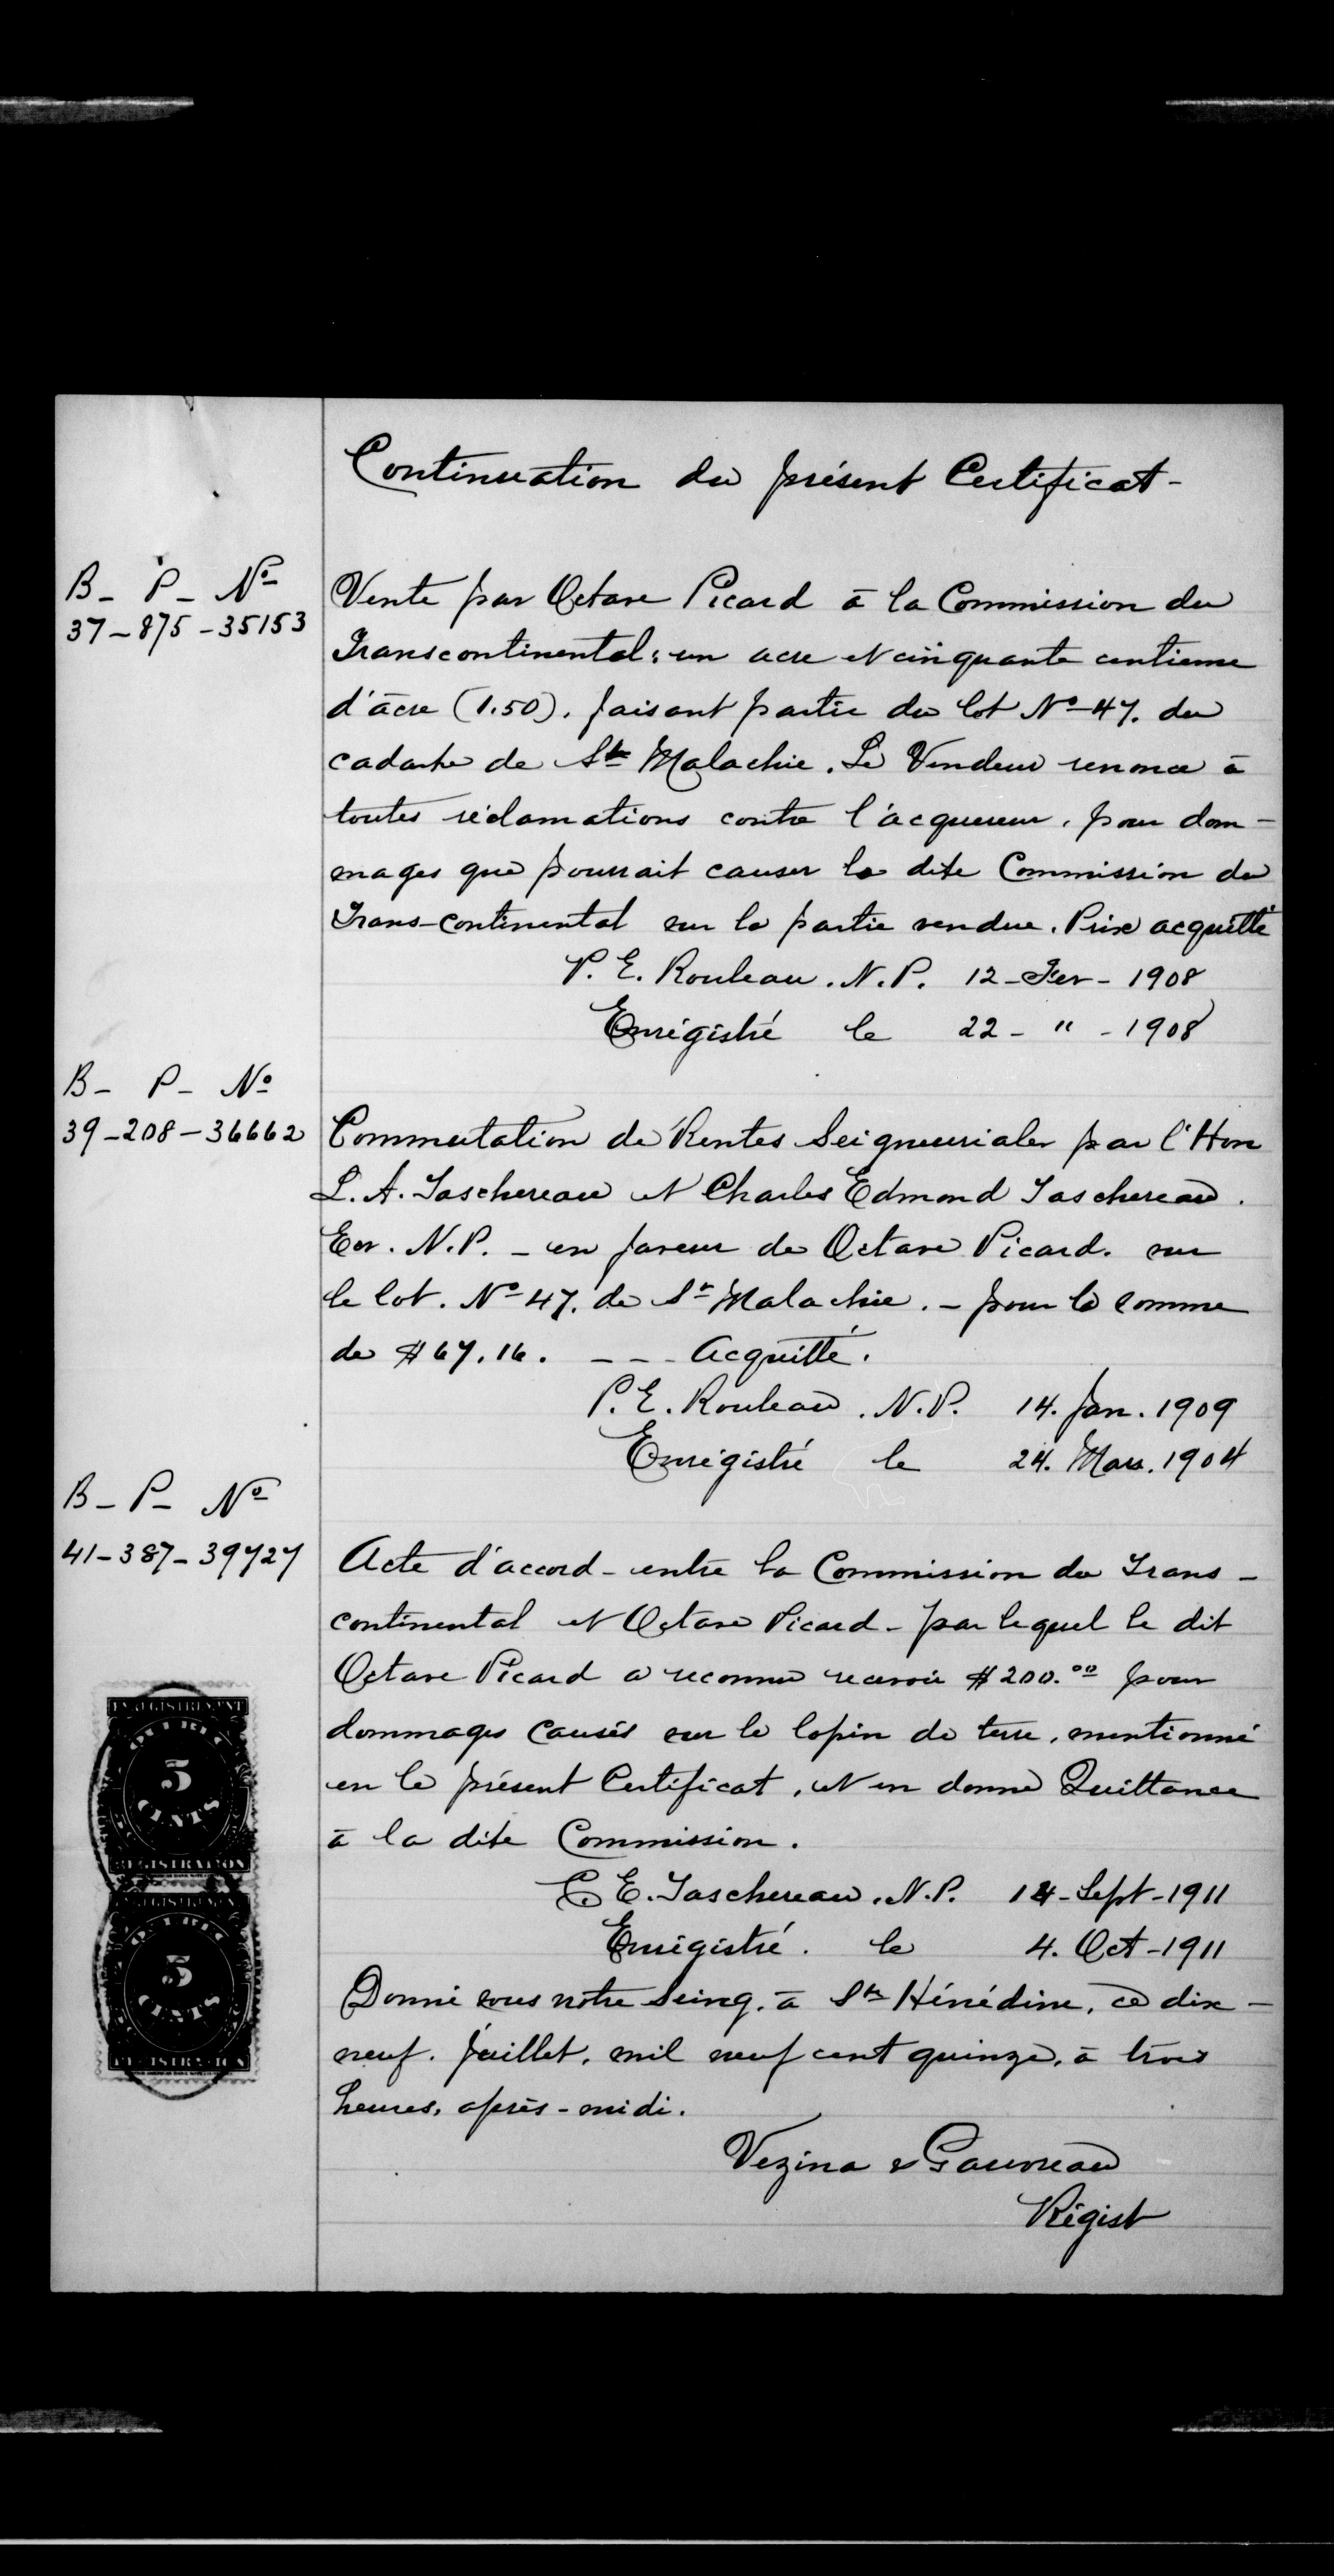 Continuation du présent Certificat -
B - P - No
37 - 875 - 35153
Vente par Octave Picard à la Commission du
Transcontinental : un acre et cinquante centieme
d'àcre (1.50). faisant partie du lot No 47. du
cadastre de St Malachie. Le Vendeur renonce à
toutes réclamations contre l'acquereur, pour dom -
mages que pourrait causer la dite Commission du
Trans-continental sur la partie vendue. Prix acquitté
P. E. Rouleau. N. P. 12 - Fev - 1908
Enrégistré le 22 - " - 1908
B - P - No
39 - 208 - 36662
Commutation de Rentes Seigneuriales par l'Hon
L. A. Taschereau et Charles Edmond Taschereau.
Ecr. N. P. - en faveur de Octave Picard. sur
le lot. No 47. de St Malachie. - pour la somme
de $ 67.16. - - - Acquitté.
P. E. Rouleau. N. P. 14. Jan. 1909
Enrégistré le 24. Mars. 1904
B - P - No
41 - 387 - 39727
Acte d'accord - entre la Commission du Trans -
continental et Octave Picard - par lequel le dit
Octave Picard a reconnu recevoir $ 200.00 pour
dommages causés sur le lopin de terre, mentionné
en le présent Certificat, et en donne Quittance
à la dite Commission.
C. E. Taschereau. N. P. 14 - Sept - 1911
Enrégistré. le 4. Oct - 1911
Donné sous notre Seing. à Ste Hénédine, ce dix -
neuf. juillet. mil neuf cent quinze, à trois
heures, après - midi.
Vezina & Gauvreau
Régist
ENREGISTREMENT
QUEBEC
5
CENTS
REGISTRATION
ENREGISTREMENT
QUEBEC
5
CENTS
REGISTRATION